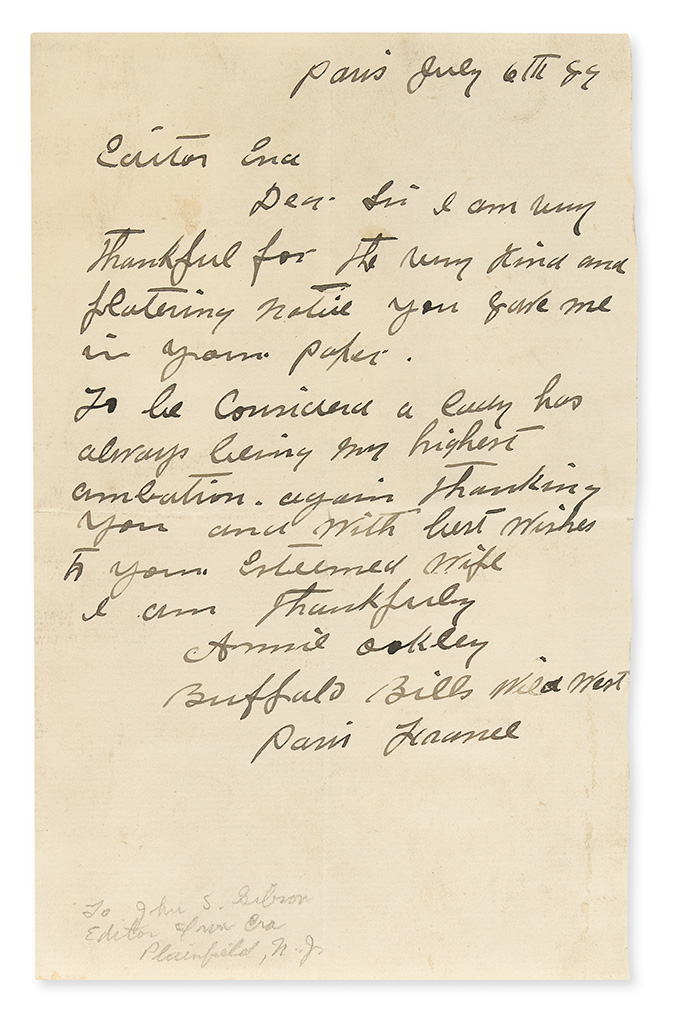 Paris July 6TH 89
Editor Era
Dear Sir I am very
thankful for the very kind and
flatering notice you gave me
in your paper.
To be Considered a lady has
always being my highest
ambation. again thanking
you and with best wishes
to your Esteemed wife
I am thankfuly
Annie Oakley
Buffalo Bills Wild West
Paris France
To John S. Gibson
Editor Era
Plainfield, N. J.